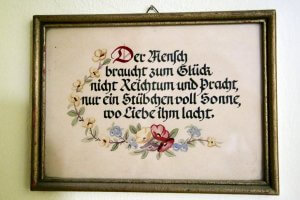 Der Mensch
braucht zum Glück
nicht Reichtum und Pracht,
nur ein Stübchen voll Sonne,
wo Liebe ihm lacht.